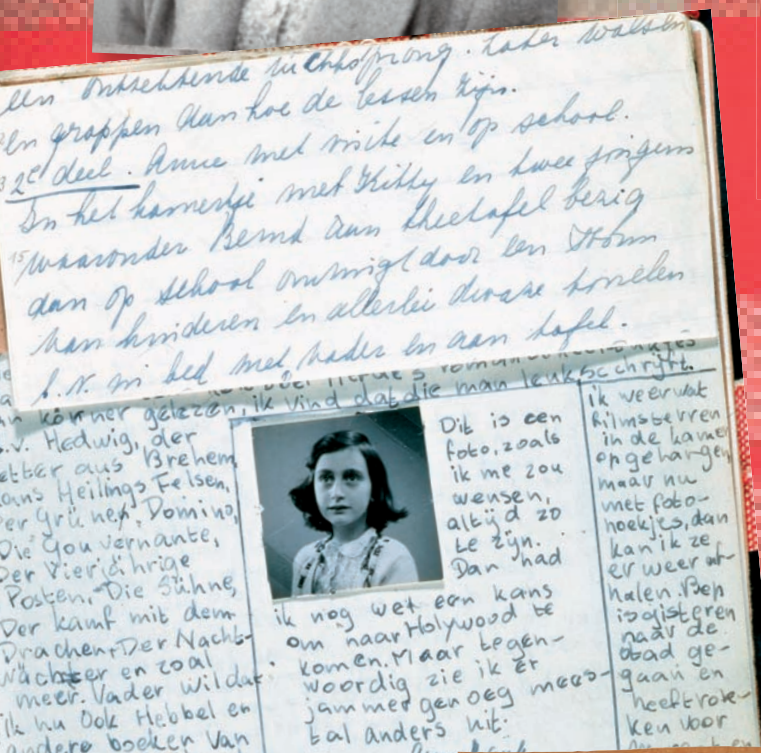 een ontzettende luchtsprong. Later walsen
en grappen dan hoe de lessen zijn.
2e deel. Anne met visite en op school.
In het kamertje met Kitty en twee jongens
waaronder Bernd aan theetafel bezig
dan op school omringd door een
van kinderen en allerlei dwaze
b.v. in bed met vader en aan tafel.
körner gelezen, ik vind dat die man leuk schrijft.
b.v. Hedwig, der
etter aus Brehem,
ans Heilings Felsen,
er Grüner Domino,
Die Gouvernante,
Der Vierjährige
Posten, Die Sühne,
Der kamf mit dem
Drachen, Der Nacht-
wächter en zoal
meer. Vader wil dat
ik nu Ook Hebbel en
andere boeken van
Dit is een
foto, zoals
ik me zou
wensen,
altijd zo
te zijn.
Dan had
ik nog wel een kans
om naar Holywood te
komen. Maar tegen-
woordig zie ik er
jammer genoeg mees-
tal anders uit.
ik weer wat
filmsterren
in de kamer
opgehangen,
maar nu
met foto-
hoekjes, dan
kan ik ze
er weer af-
halen. Bep
is gisteren
naar de
stad ge-
gaan en
heeft rok-
ken voor